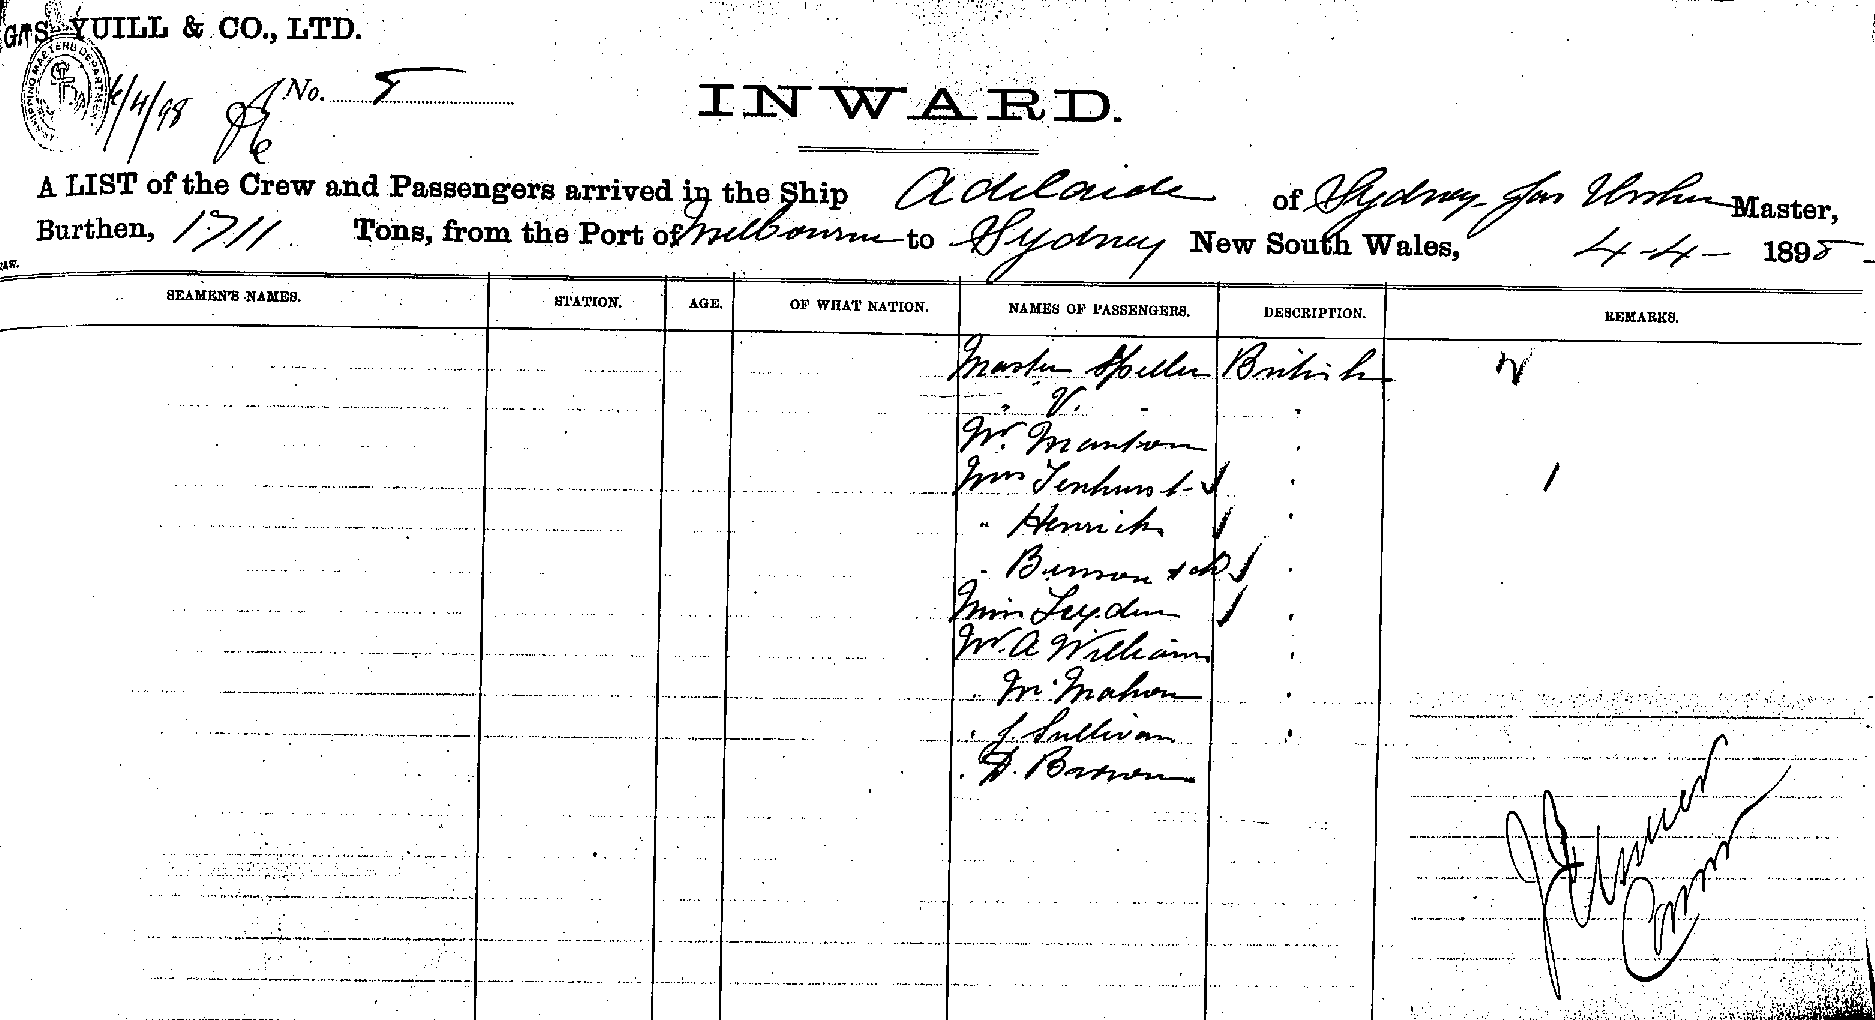 GAS. YUILL & CO., LTD.
6/4/98 No. 5
INWARD.
A LIST of the Crew and Passengers arrived in the Ship Adelaide of Sydney Jas Master,
Burthen, 1711 Tons, from the Port of Melbourne to Sydney New South Wales, 4-4- 1898
SEAMEN'S NAMES. STATION. AGE. OF WHAT NATION. NAMES OF PASSENGERS. DESCRIPTION. REMARKS.
Master Speller British
" V. " "
Mr. Manton "
Mrs Tenhurst "
" Henrich "
" Benson & ch "
Miss Leyden "
Mr. A Williams "
" McMahon "
" J. Sullivan "
" D. Brown